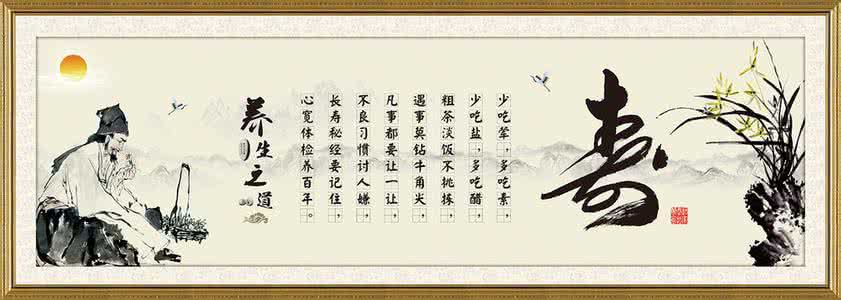 寿
少吃荤，多吃素，
少吃盐，多吃醋，
粗茶淡饭不挑拣，
遇事莫钻牛角尖，
凡事都要让一让，
不良习惯讨人嫌，
长寿秘经要记住，
心宽体检养百年。
养生之道